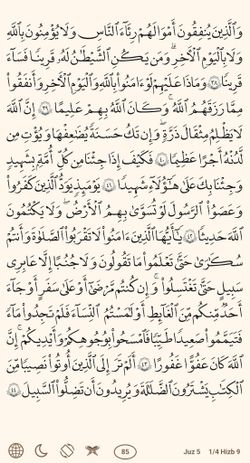 وَٱلَّذِينَ يُنفِقُونَ أَمْوَٰلَهُمْ رِئَآءَ ٱلنَّاسِ وَلَا يُؤْمِنُونَ بِٱللَّهِ
وَلَا بِٱلْيَوْمِ ٱلْـَٔاخِرِ ۗ وَمَن يَكُنِ ٱلشَّيْطَٰنُ لَهُۥ قَرِينًا فَسَآءَ
قَرِينًا ٣٨ وَمَاذَا عَلَيْهِمْ لَوْ ءَامَنُوا۟ بِٱللَّهِ وَٱلْيَوْمِ ٱلْـَٔاخِرِ وَأَنفَقُوا۟
مِمَّا رَزَقَهُمُ ٱللَّهُ ۚ وَكَانَ ٱللَّهُ بِهِمْ عَلِيمًا ٣٩ إِنَّ ٱللَّهَ
لَا يَظْلِمُ مِثْقَالَ ذَرَّةٍ ۖ وَإِن تَكُ حَسَنَةً يُضَٰعِفْهَا وَيُؤْتِ مِن
لَّدُنْهُ أَجْرًا عَظِيمًا ٤٠ فَكَيْفَ إِذَا جِئْنَا مِن كُلِّ أُمَّةٍۭ بِشَهِيدٍ
وَجِئْنَا بِكَ عَلَىٰ هَٰٓؤُلَآءِ شَهِيدًا ٤١ يَوْمَئِذٍ يَوَدُّ ٱلَّذِينَ كَفَرُوا۟
وَعَصَوُا۟ ٱلرَّسُولَ لَوْ تُسَوَّىٰ بِهِمُ ٱلْأَرْضُ وَلَا يَكْتُمُونَ
ٱللَّهَ حَدِيثًا ٤٢ يَٰٓأَيُّهَا ٱلَّذِينَ ءَامَنُوا۟ لَا تَقْرَبُوا۟ ٱلصَّلَوٰةَ وَأَنتُمْ
سُكَٰرَىٰ حَتَّىٰ تَعْلَمُوا۟ مَا تَقُولُونَ وَلَا جُنُبًا إِلَّا عَابِرِى
سَبِيلٍ حَتَّىٰ تَغْتَسِلُوا۟ ۚ وَإِن كُنتُم مَّرْضَىٰٓ أَوْ عَلَىٰ سَفَرٍ أَوْ جَآءَ
أَحَدٌ مِّنكُم مِّنَ ٱلْغَآئِطِ أَوْ لَٰمَسْتُمُ ٱلنِّسَآءَ فَلَمْ تَجِدُوا۟ مَآءً
فَتَيَمَّمُوا۟ صَعِيدًا طَيِّبًا فَٱمْسَحُوا۟ بِوُجُوهِكُمْ وَأَيْدِيكُمْ ۗ إِنَّ
ٱللَّهَ كَانَ عَفُوًّا غَفُورًا ٤٣ أَلَمْ تَرَ إِلَى ٱلَّذِينَ أُوتُوا۟ نَصِيبًا مِّنَ
ٱلْكِتَٰبِ يَشْتَرُونَ ٱلضَّلَٰلَةَ وَيُرِيدُونَ أَن تَضِلُّوا۟ ٱلسَّبِيلَ ٤٤
85 Juz 5 1/4 Hizb 9